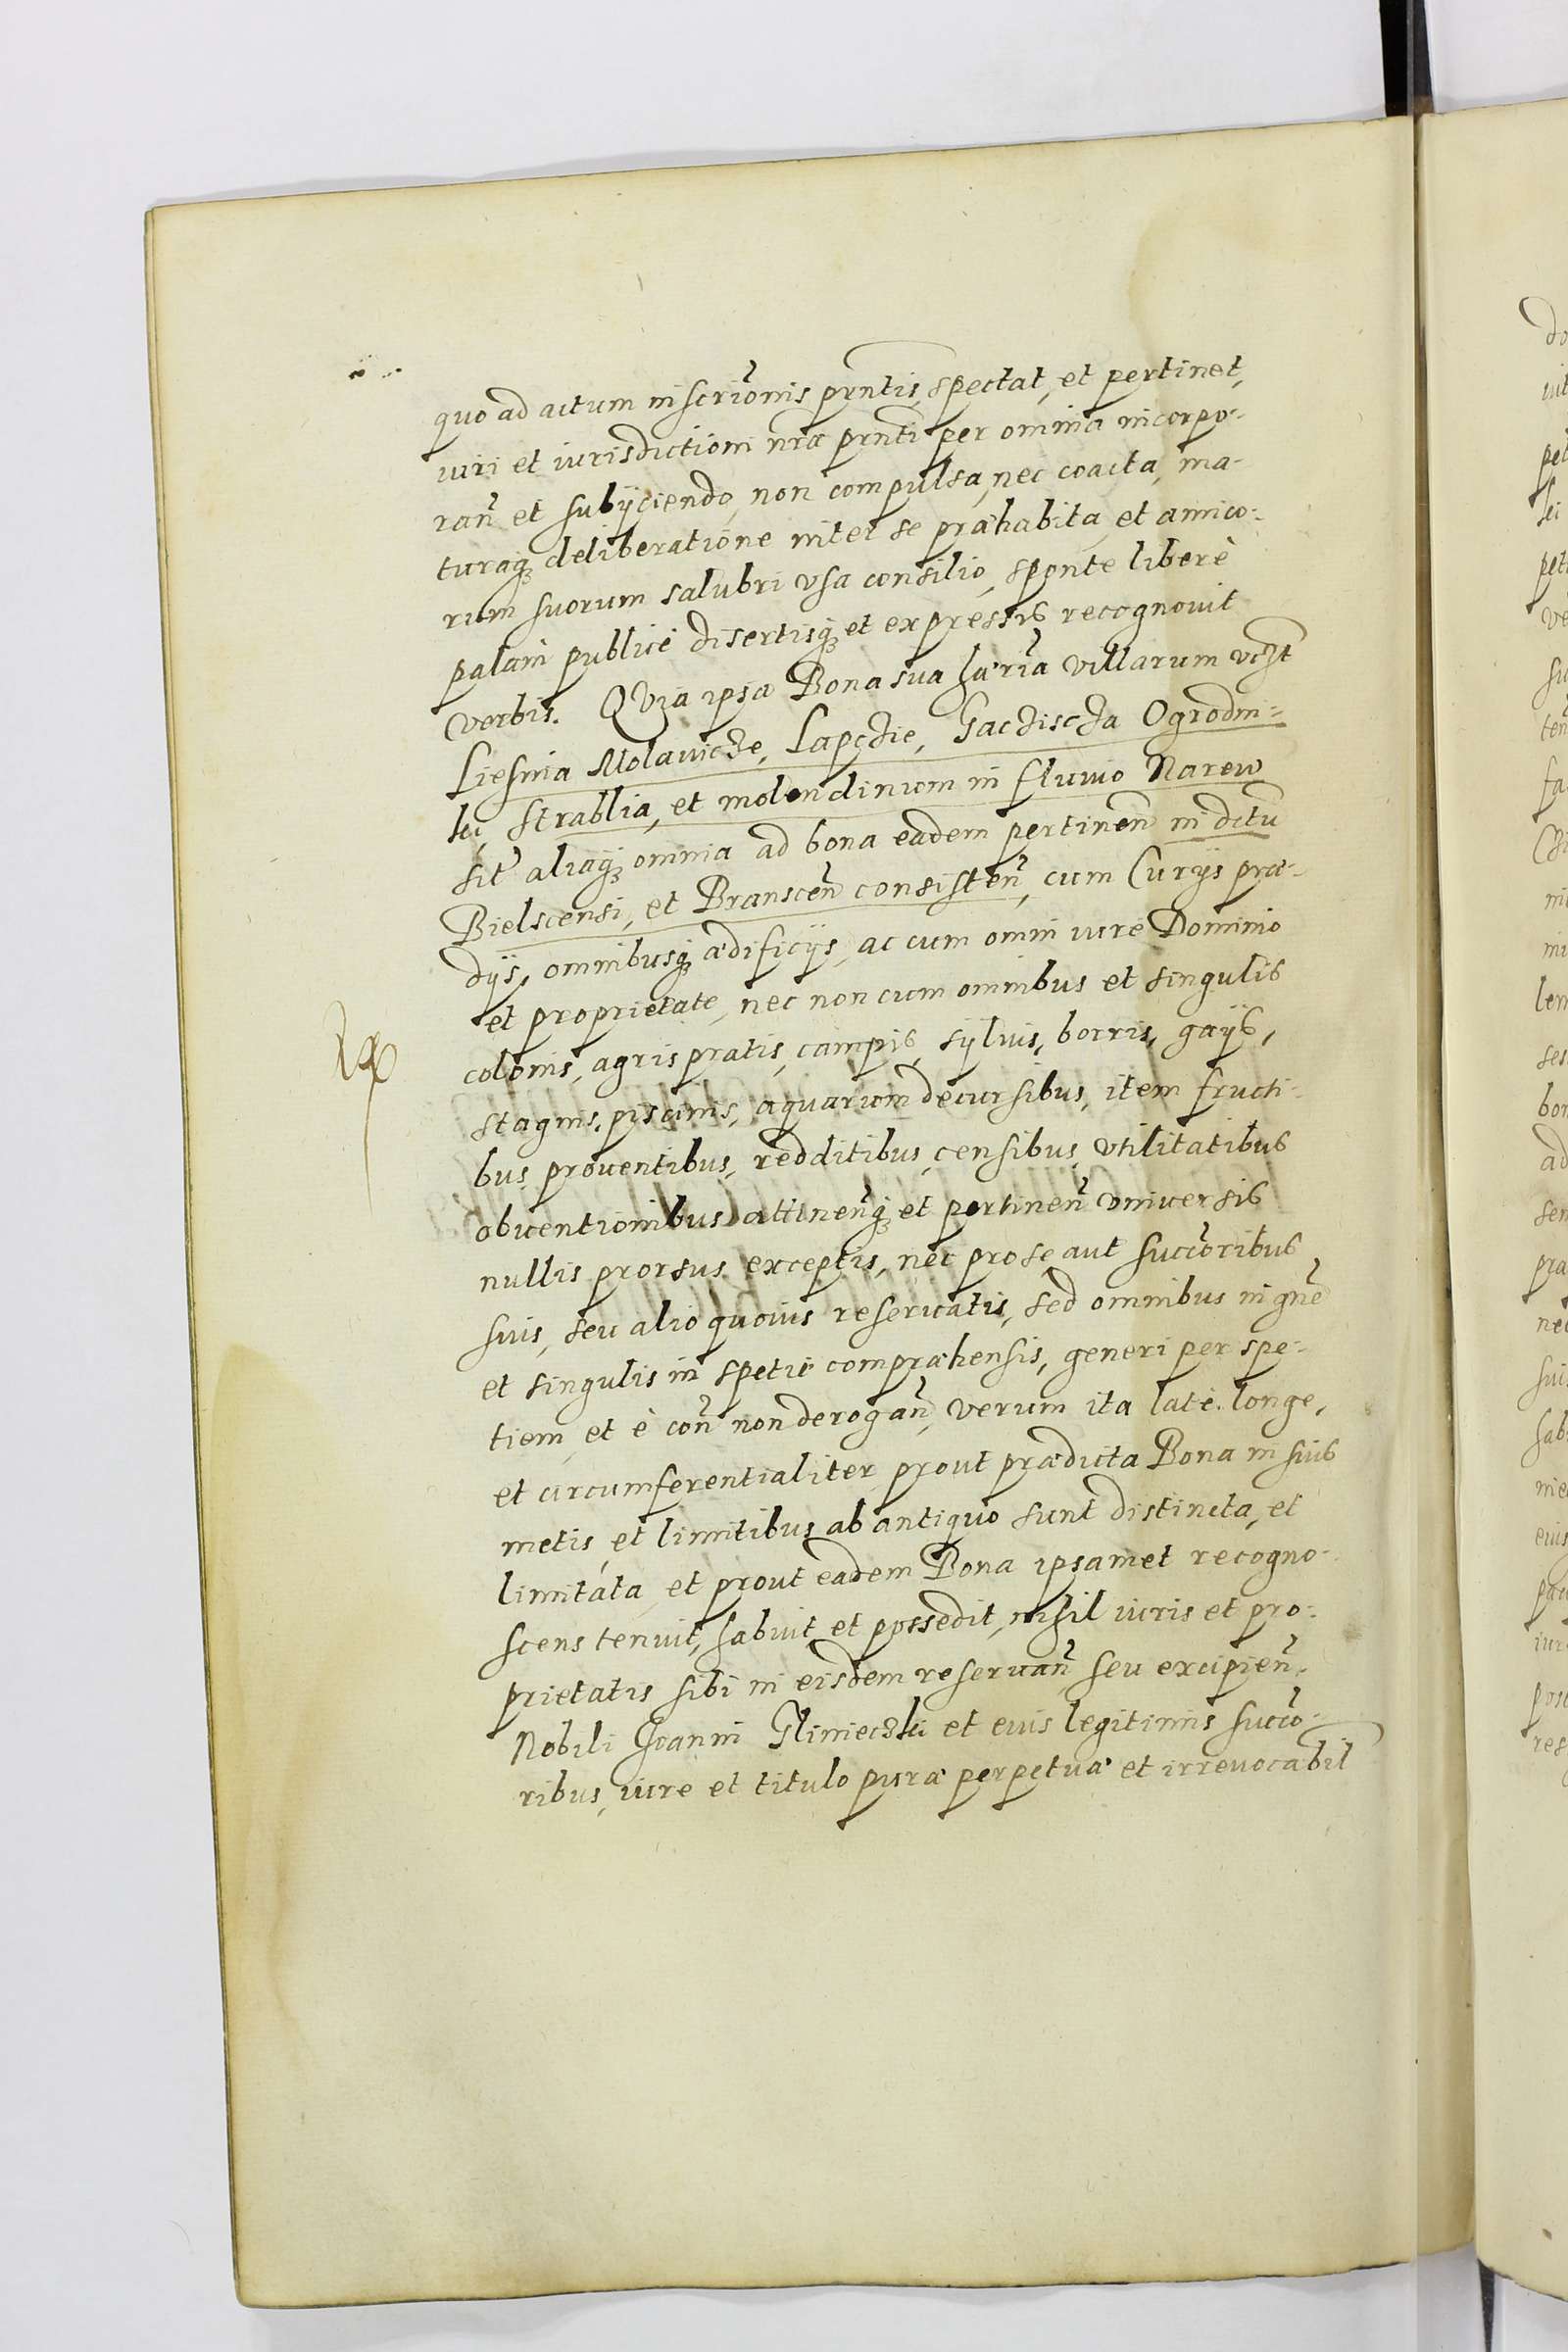 quo ad actum inscrio͞nis prn͞tis, spectat, et pertinet,
iuri et iurisdictioni nr͞æ prn͞ti per omnia incorpo-
ran͞ et subÿciendo, non compulsa, nec coacta, ma-
turaq; deliberatione inter se præhabita, et amico-
rum suorum salubri vsa consilio, sponte liberè
palam publicè disertisq; et expressis recognouit
verbis. QVia ipsa Bona sua hær͞ia villarum vczt
Liesnia Molawicze, Lapczie, Gachiscza Ogrodni-
ki, Strablia, et molendinum in fluuio Narew
sit͞ aliaq; omnia ad bona eadem pertinen͞ in dctu͞
Bielscensi, et Branscen͞ consisten͞, cum Curÿs præ-
dÿs, omnibusq; ædificÿs, ac cum omni iure Dominio
et proprietate, nec non cum omnibus et singulis
colonis, agris pratis, campis, sÿluis, borris, gaÿs,
stagnis, piscinis, aquarum decursibus, item fructi-
bus prouentibus, redditibus, censibus, vtilitatibus
obuentionibus attinen͞q; et pertinen͞ vniuersis
nullis prorsus exceptis, nec pro se aut succ͞oribus
suis, seu alio quouis reseruatis, sed omnibus in gn͞e
et singulis in spetie compræhensis, generi per spe-
tiem et è con͞ non derogan͞, verum ita latè longe,
et circumferentialiter prout prædicta Bona in suis
metis, et limitibus ab antiquo sunt distincta, et
limitata et prout eadem Bona ipsamet recogno-
scens tenuit, habuit et possedit, nihil iuris et pro-
prietatis sibi in eisdem reseruan͞ seu excipien͞,
Nobili Joanni Glinieczki et eius legitimis succ͞o-
ribus, iure et titulo puræ perpetuæ et irreuocabil